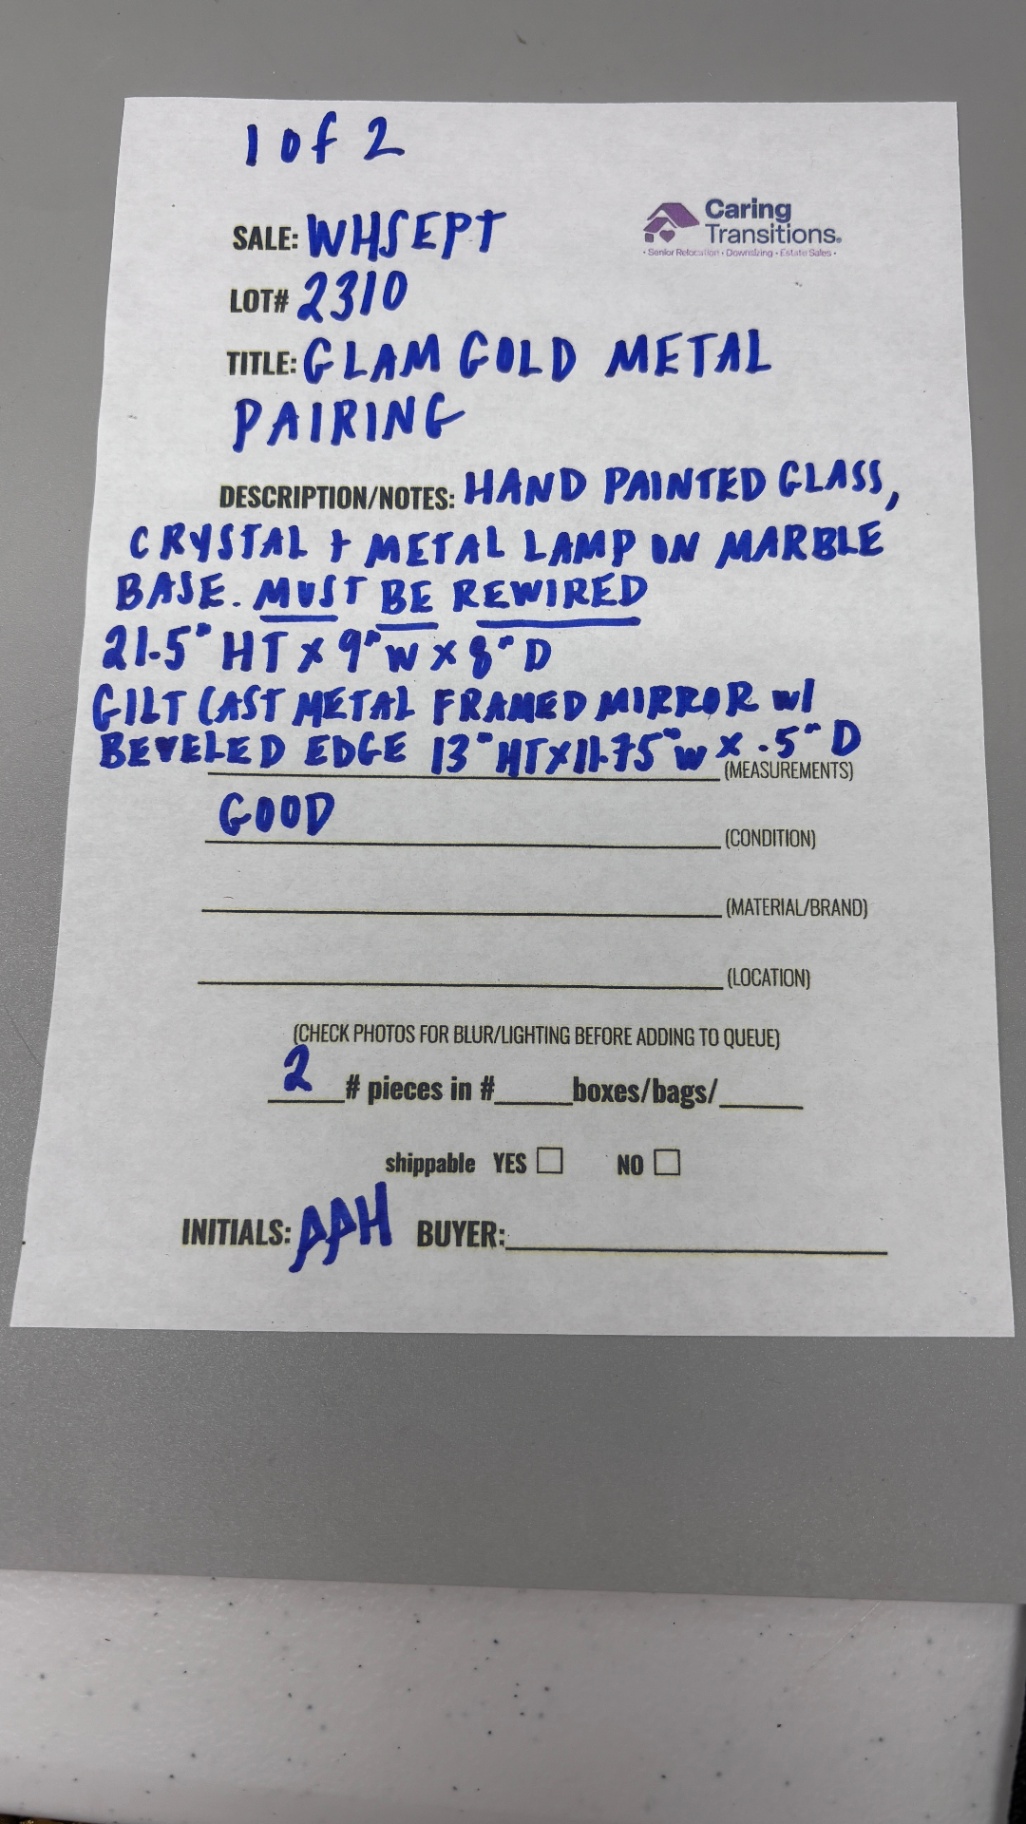 1 of 2
Caring
Transitions.
• Senior Relocation • Downsizing • Estate Sales •
SALE: WHSEPT
LOT# 2310
TITLE: GLAM GOLD METAL
PAIRING
DESCRIPTION/NOTES: HAND PAINTED GLASS,
CRYSTAL + METAL LAMP ON MARBLE
BASE. MUST BE REWIRED
21.5" HT x 9" W x 8" D
GILT CAST METAL FRAMED MIRROR w/
BEVELED EDGE 13" HT x 11.75" W x .5" D
(MEASUREMENTS)
GOOD (CONDITION)
(MATERIAL/BRAND)
(LOCATION)
(CHECK PHOTOS FOR BLUR/LIGHTING BEFORE ADDING TO QUEUE)
2 # pieces in #_____boxes/bags/_____
shippable YES ☐ NO ☐
INITIALS: AAH BUYER: